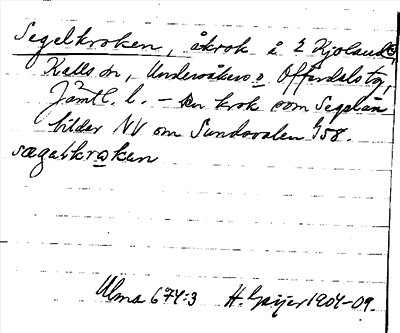 Segelkroken, åkrok å
Kalls sn, Undersåkers o. Offerdals tg,
Jämtl. l. – Den krok som Segelån
bildar NV om Sundsvalen 958.
sægəlkrokən
Ulma 674:3 H. Geijer 1907-09.